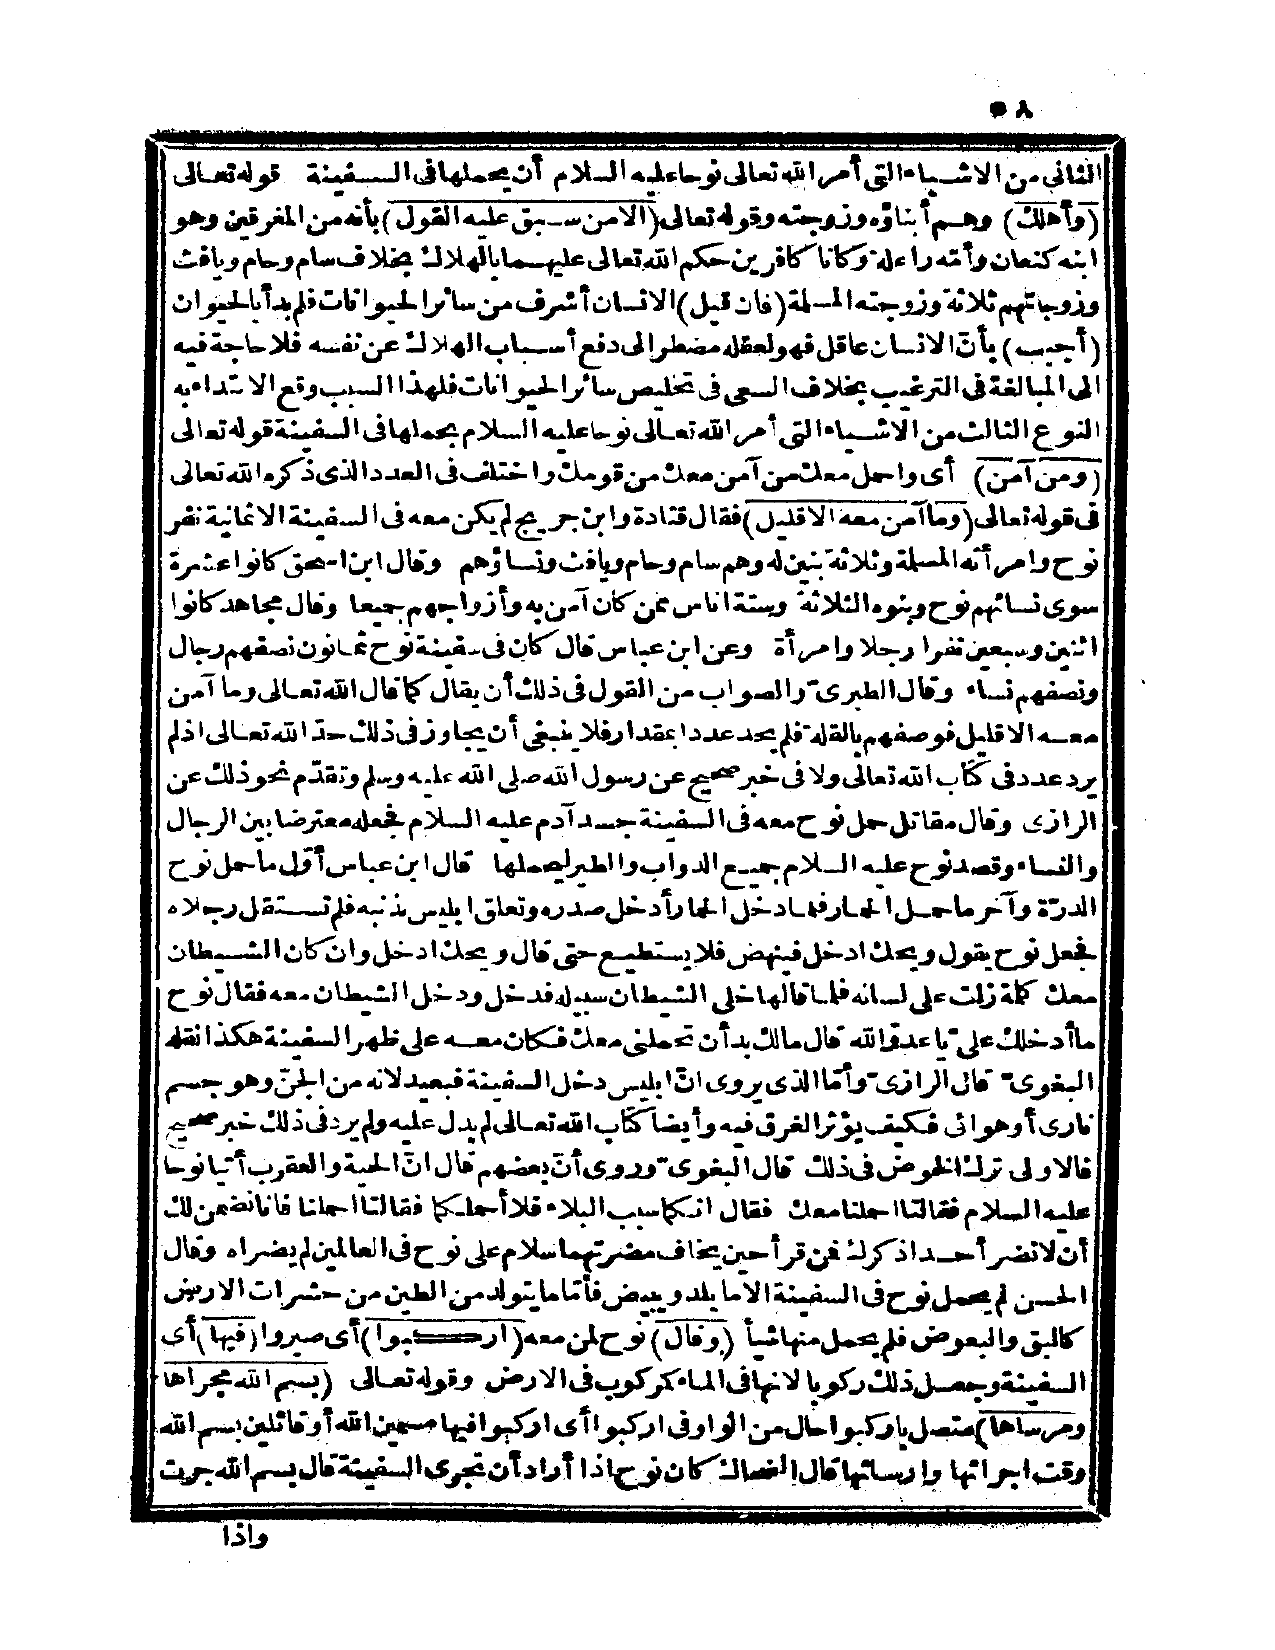 ٥٨
الثانى من الاشياء التى أمر الله تعالى نوحا عليه السلام أن يحملها فى السفينة قوله تعالى
(وأهلك) وهم أبناؤه وزوجته وقوله تعالى (الامن سبق عليه القول) بأنه من المغرقين وهو
ابنه كنعان وأمّه راعلة وكانا كافرين حكم الله تعالى عليهما بالهلاك بخلاف سام وحام ويافث
وزوجاتهم ثلاثة وزوجته المسلمة (فان قيل) الانسان أشرف من سائر الحيوانات فلم بدأ بالحيوان
(أجيب) بأنّ الانسان عاقل فهو لعقله مضطر الى دفع أسباب الهلاك عن نفسه فلا حاجة فيه
الى المبالغة فى الترغيب بخلاف السعى فى تخليص سائر الحيوانات فلهذا السبب وقع الابتداء به
النوع الثالث من الاشياء التى أمر الله تعالى نوحا عليه السلام بحملها فى السفينة قوله تعالى
(ومن آمن) أى واحمل معك من آمن معك من قومك واختلف فى العدد الذى ذكره الله تعالى
فى قوله تعالى (وما آمن معه الاقليل) فقال قتادة وابن جريج لم يكن معه فى السفينة الاثمانية نفر
نوح وامرأته المسلمة وثلاثة بنين له وهم سام وحام ويافث ونساؤهم وقال ابن اسحق كانوا عشرة
سوى نسائهم نوح وبنوه الثلاثة وستة اناس ممن كان آمن به وأزواجهم جميعا وقال مجاهد كانوا
اثنين وسبعين نفرا رجلا وامرأة وعن ابن عباس قال كان فى سفينة نوح ثمانون نصفهم رجال
ونصفهم نساء وقال الطبرى والصواب من القول فى ذلك أن يقال كما قال الله تعالى وما آمن
معه الاقليل فوصفهم بالقلة فلم يحد عددا بمقدار فلا ينبغى أن يجاوز فى ذلك حدّ الله تعالى اذ لم
يرد عدد فى كتاب الله تعالى ولا فى خبر صحيح عن رسول الله صلى الله عليه وسلم وتقدّم نحو ذلك عن
الرازى وقال مقاتل حمل نوح معه فى السفينة جسد آدم عليه السلام فجعله معترضا بين الرجال
والنساء وقصد نوح عليه السلام جميع الدواب والطير ليحملها قال ابن عباس أوّل ما حمل نوح
الدرّة وآخر ما حمل الحمار فلما دخل الحمار أدخل صدره وتعلق ابليس بذنبه فلم تستقل رجلاه
فجعل نوح يقول ويحك ادخل فينهض فلا يستطيع حتى قال ويحك ادخل وان كان الشيطان
معك كلمة زلت على لسانه فلما قالها خلى الشيطان سبيله فدخل ودخل الشيطان معه فقال نوح
ما أدخلك علىّ يا عدوّ الله قال مالك بد أن تحملنى معك فكان معه على ظهر السفينة هكذا نقله
البغوى قال الرازى وأمّا الذى يروى انّ ابليس دخل السفينة فبعيد لانه من الجنّ وهو جسم
نارى أو هوائى فكيف يؤثر الغرق فيه وأيضا كتاب الله تعالى لم يدل عليه ولم يرد فى ذلك خبر صحيح
فالاولى ترك الخوض فى ذلك قال البغوى وروى أنّ بعضهم قال انّ الحية والعقرب أتيا نوحا
عليه السلام فقالتا احملنا معك فقال انكما سبب البلاء فلا أحملكما فقالتا احملنا فانا نضمن لك
أن لا نضر أحدا ذكرك فمن قرأ حين يخاف مضرتهما سلام على نوح فى العالمين لم يضراه وقال
الحسن لم يحمل نوح فى السفينة الا ما يلد ويبيض فأمّا ما يتولد من الطين من حشرات الارض
كالبق والبعوض فلم يحمل منها شيأ (وقال) نوح لمن معه (اركبوا) أى صيروا (فيها) أى
السفينة وجعل ذلك ركوبا لانها فى الماء كركوب فى الارض وقوله تعالى (بسم الله مجراها
ومرساها) متصل باركبوا حال من الواو فى اركبوا أى اركبوا فيها مسمين الله أو قائلين بسم الله
وقت اجرائها وارسائها قال الضحاك كان نوح اذا أراد أن تجرى السفينة قال بسم الله جرت
واذا